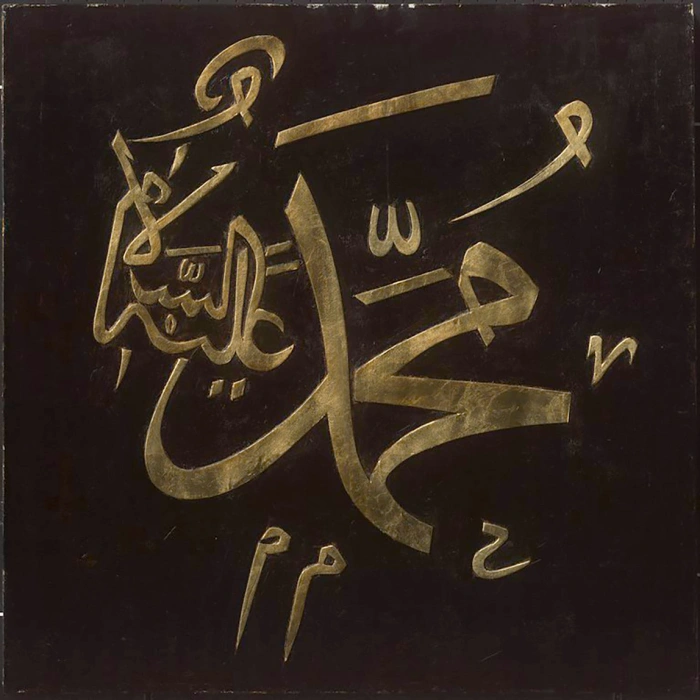 مُحَمَّد
عَلَيْهِ السَّلَامُ